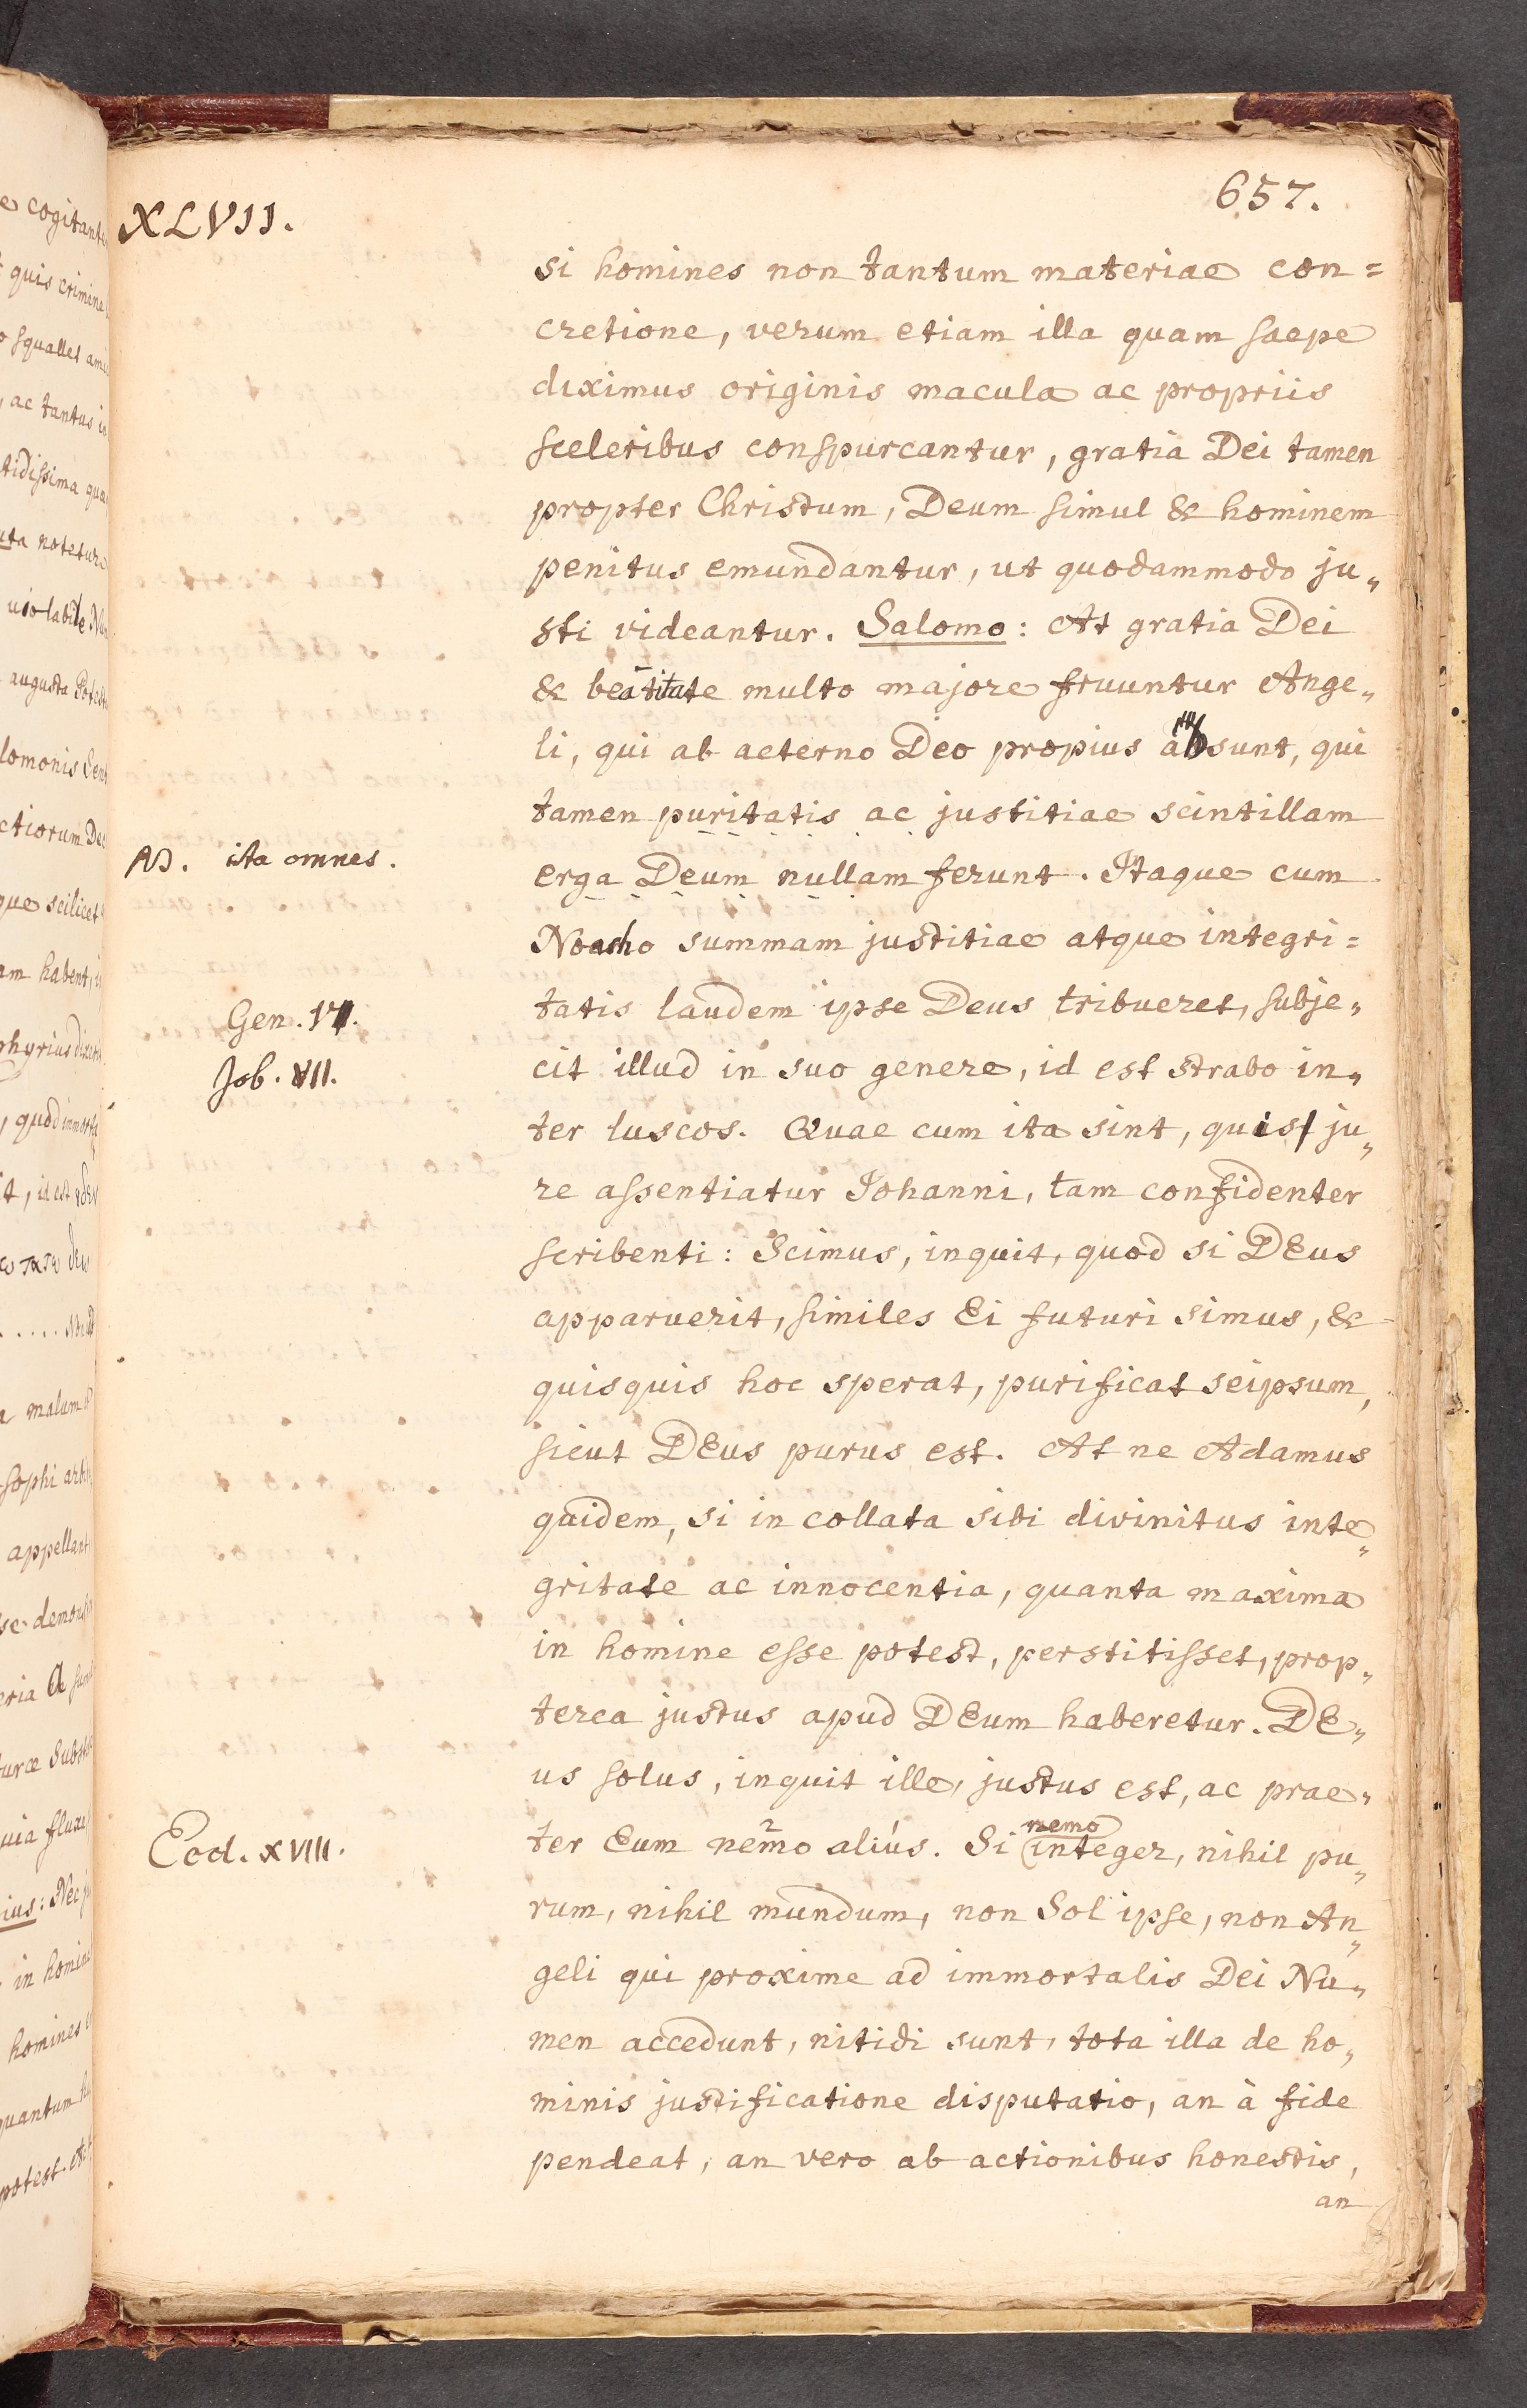 XLVII.
657.
si homines non tantum materiae con=
cretione, verum etiam illa quam saepe
diximus originis macula ac propriis
sceleribus conspurcantur, gratia Dei tamen
propter Christum, Deum simul & hominem
penitus emundantur, ut quodammodo ju„
sti videantur. Salomo: At gratia Dei
& beatitate multo majore fruuntur Ange„
li, qui ab aeterno Deo propius absunt, qui
tamen puritatis ac justitiae scintillam
ita omnes.
erga Deum nullam ferunt. Itaque cum
Noacho summam justitiae atque integri=
Gen. VII.
tatis laudem ipse Deus tribueret, subje„
Job. VII.
cit illud in suo genere, id est strabo in„
ter luscos. Quae cum ita sint, quis ju„
re assentiatur Iohanni, tam confidenter
scribenti: Scimus, inquit, quod si DEus
apparuerit, similes Ei futuri simus, &
quisquis hoc sperat, purificat seipsum,
sicut DEus purus est. At ne Adamus
quidem, si in collata sibi divinitus inte„
gritate ac innocentia, quanta maxima
in homine esse potest, perstitisset, prop„
terea justus apud DEum haberetur. DE„
us solus, inquit ille, justus est, ac prae„
nemo
Ecd. XVIII.
ter Eum nemo alius. Si integer, nihil pu„
rum, nihil mundum, non Sol ipse, non An„
geli qui proxime ad immortalis Dei Nu„
men accedunt, nitidi sunt, tota illa de ho„
minis justificatione disputatio, an à fide
pendeat, an vero ab actionibus honestis,
an